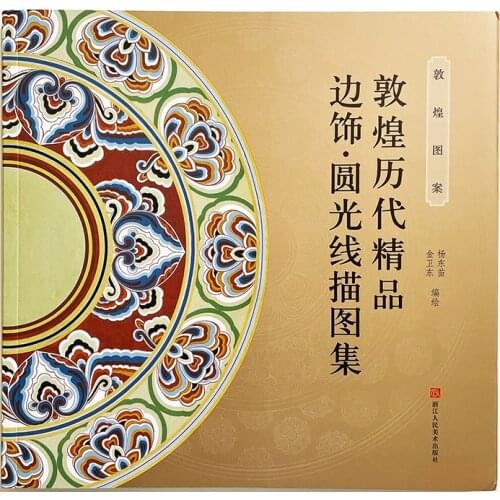 敦煌图案
敦煌历代精品
边饰·圆光线描图集
杨东苗
金卫东
编绘
浙江人民美术出版社